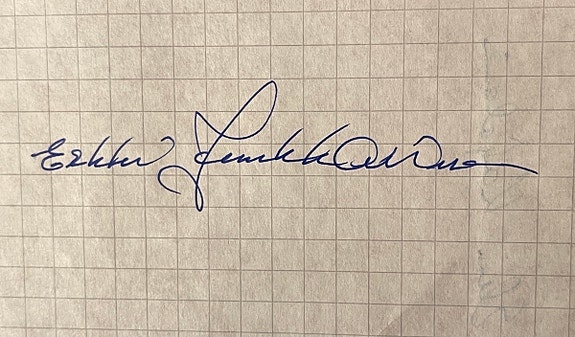 Erkki Junkkarinen